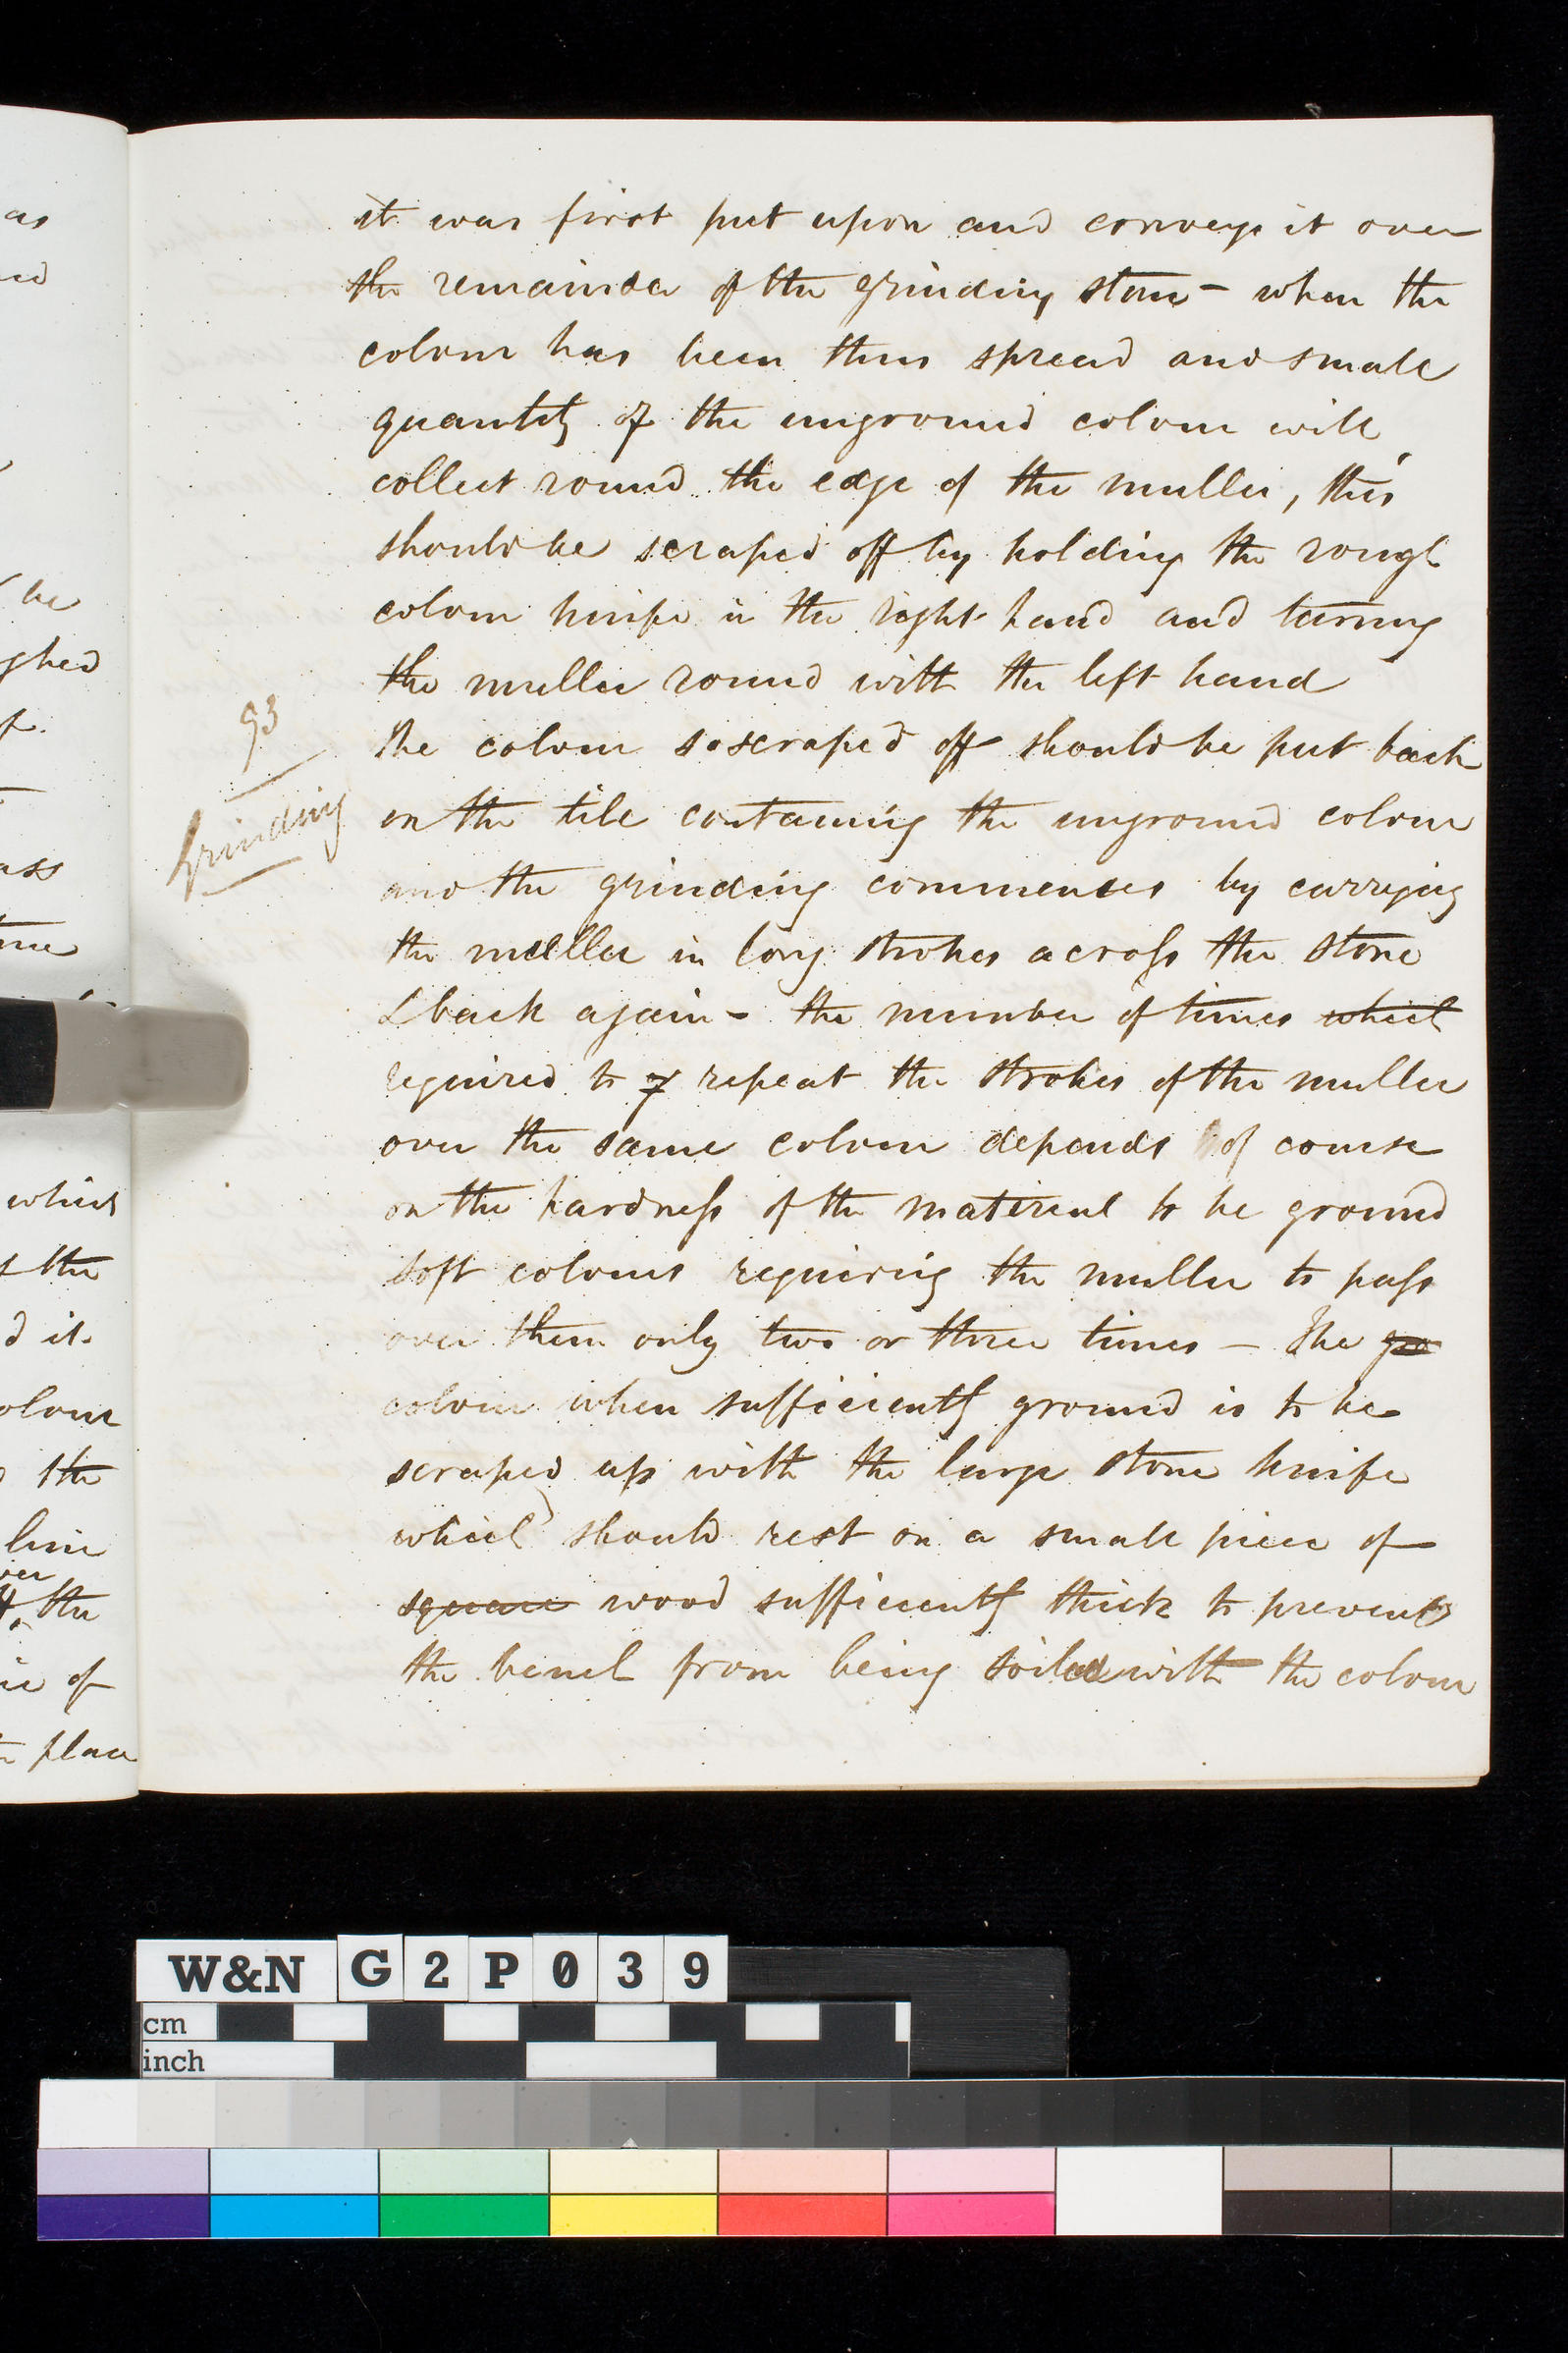 it was first put upon and conveys it over
the remainder of the grinding stone - when the
colour has been thus spread and small
quantity of the unground colour will
collect round the edge of the muller, this
should be scraped off by holding the rough
colour knife in the right hand and turning
the muller round with the left hand
93
the colour so scraped off should be put back
Grinding
on the tile containing the unground colour
and the grinding commences by carrying
the muller in long strokes across the stone
& back again - the number of times which
required to of repeat the strokes of the muller
over the same colour depends of course
on the hardness of the material to be ground
soft colours requiring the muller to pass
over them only two or three times - The
colour when sufficiently ground is to be
scraped up with the large stone knife
which should rest on a small piece of
square wood sufficiently thick to prevent
the bench from being soiled with the colour
as
be
ghed
ass
which
the
d it
olour
the
line
ver
the
of
place
W&N G2P039
cm
inch